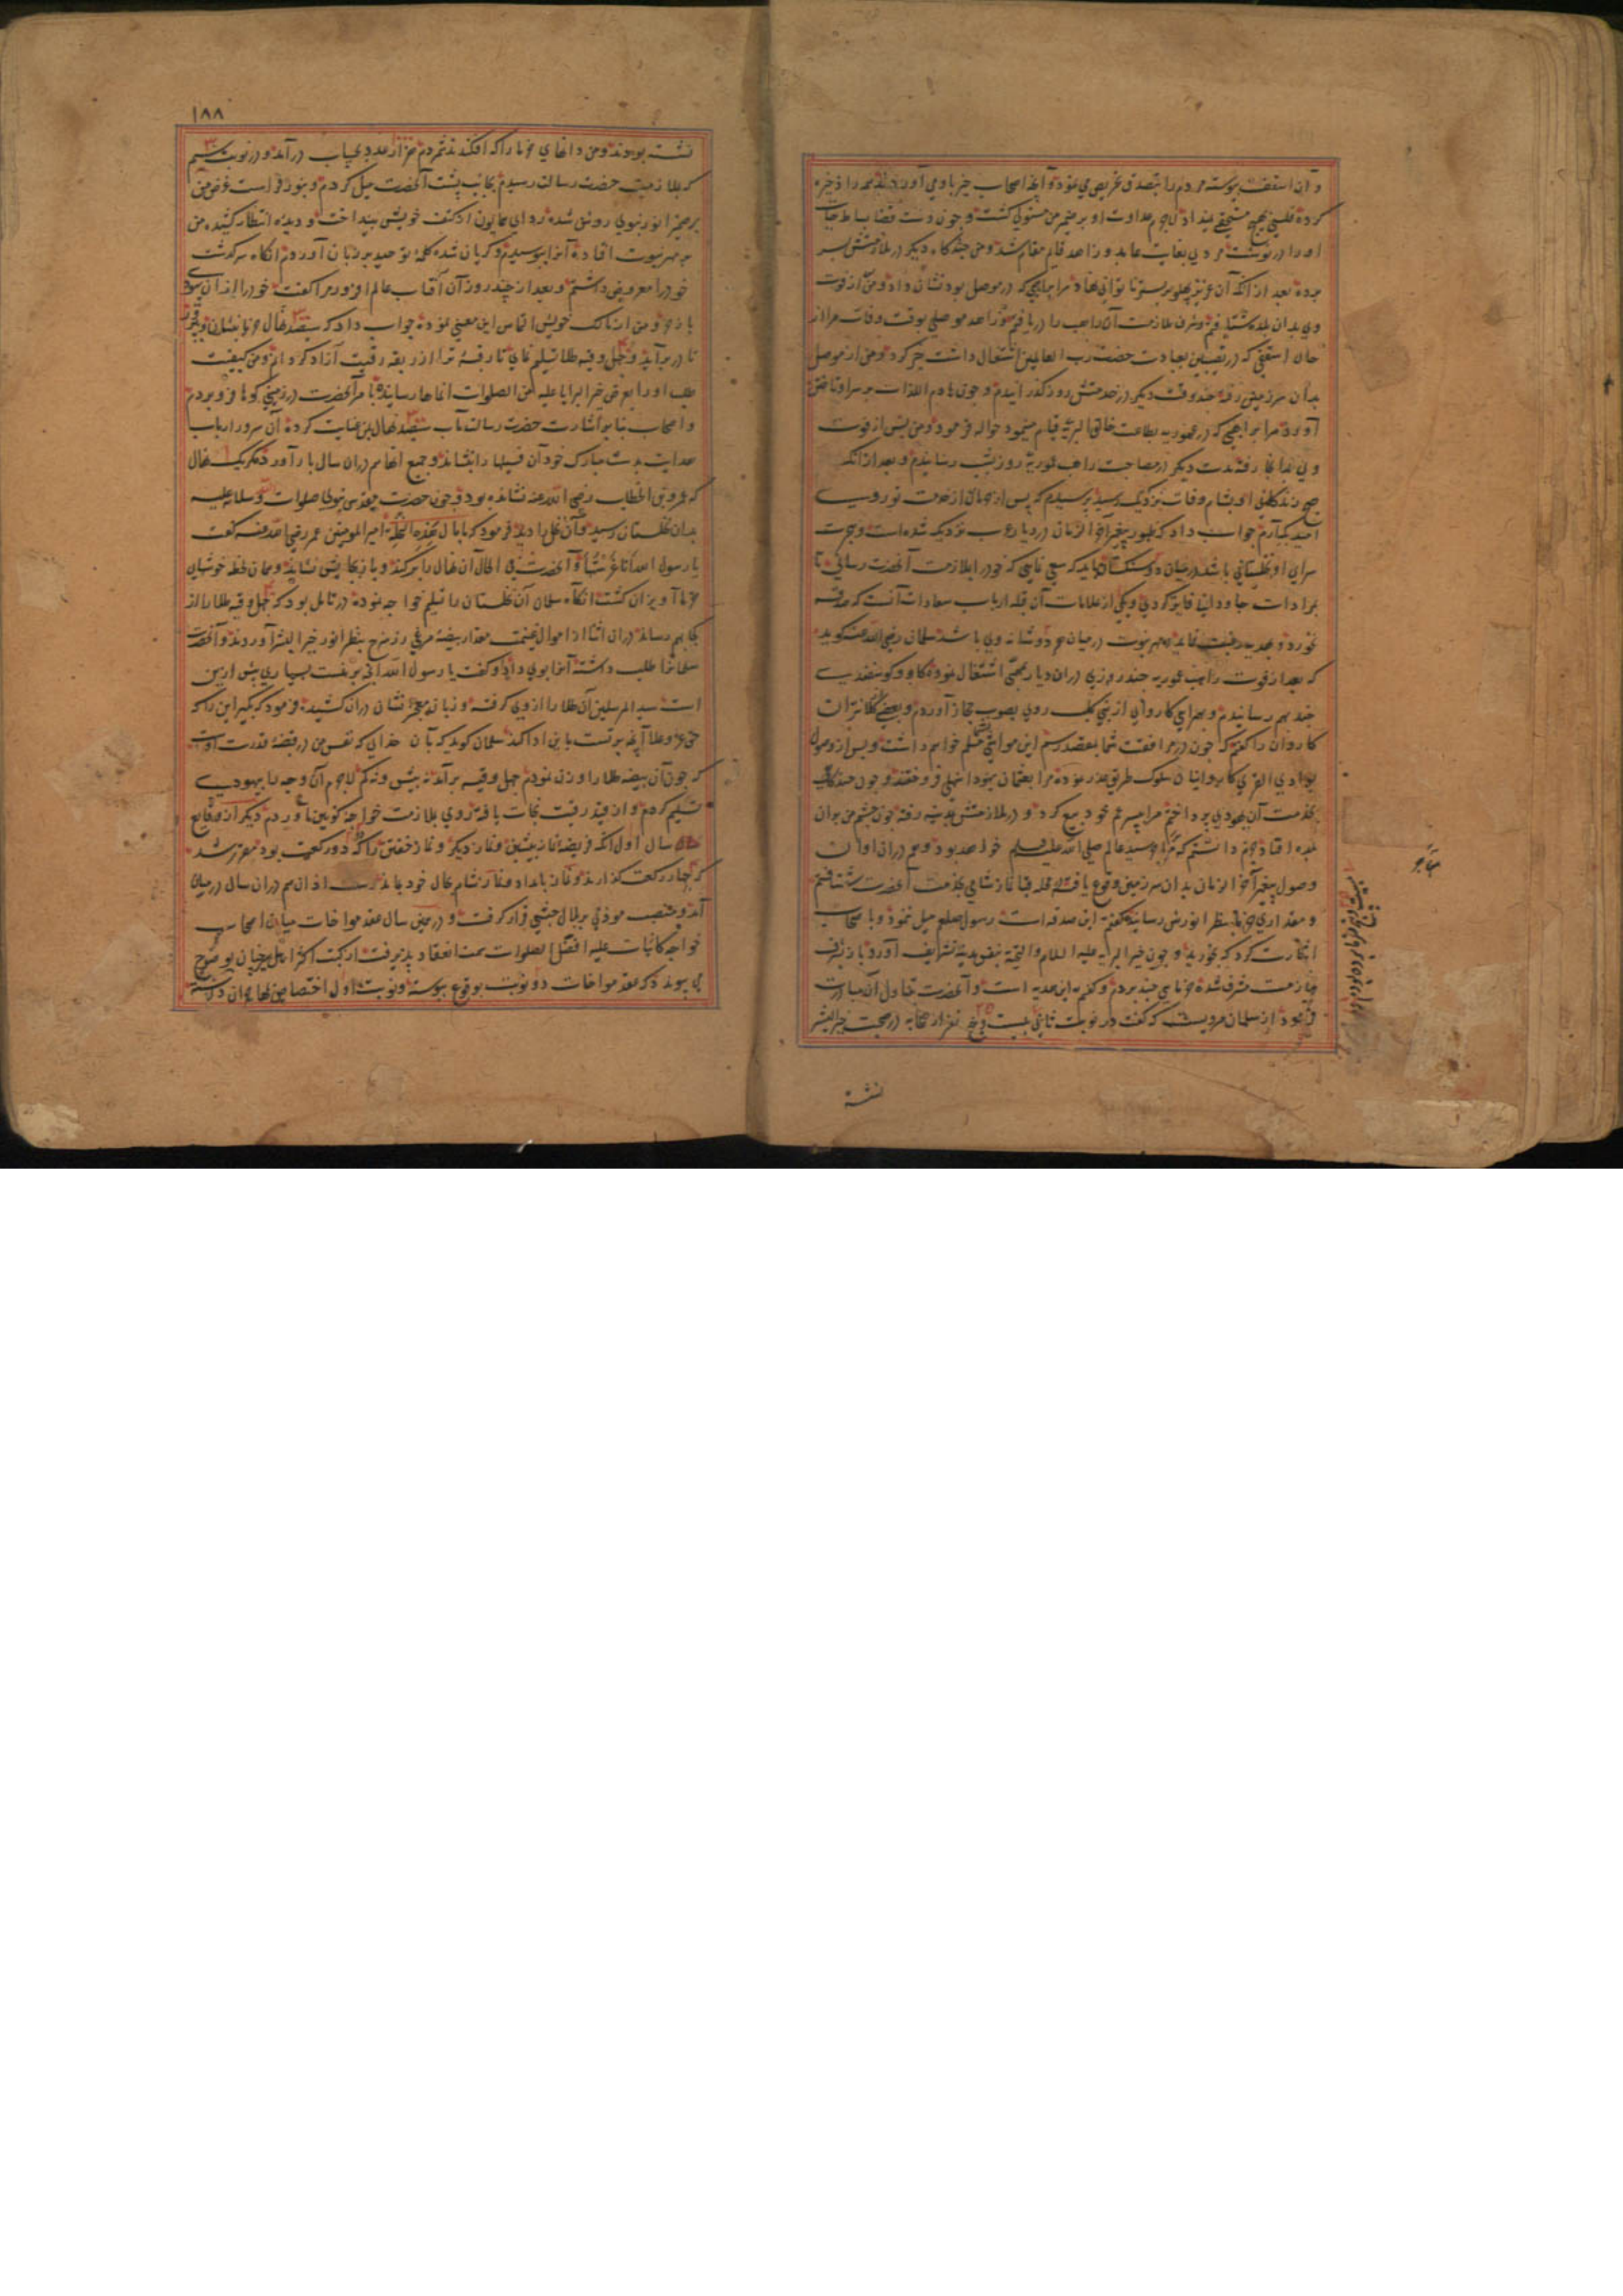 و آن اسقف پیوسته مردم را بتصدق تحریص می نمود و آنچه اصحاب خیر باو می آوردند همه را ذخیره
کرده فلسی بهیچ مستحقی نمیداد لاجرم عداوت او بر ضمیر من مستولی گشت و چون دست قضا بساط حیات
او را در نوشت مردی بغایت عابد و زاهد قایم مقام شد و من چندگاه دیگر در ملازمتش بسر
برده بعد از انکه آن عزیز پهلو بر بستر ناتوانی نهاد مرا براهبی که در موصل بود نشان داد و من از فوت
وی بدان بلده شتافتم و شرف ملازمت آن راهب را دریافتم و زاهد موصلی بوقت وفات مرا از
حال اسقفی که در نصیبین بعبادت حضرت رب العالمین اشتغال داشت خبر کرد و من از موصل
بدان سرزمین رفته چند وقت دیگر در خدمتش روز گذرانیدم و چون هادم اللذات بر سر او تاختن
آورد مرا براهبی که در عموریه بطاعت خالق البریه قیام مینمود حواله فرمود و من پس از فوت
وی بدانجا رفته مدت دیگر در مصاحبت راهب عموریه روز بشب رسانیدم و بعد از انکه
صبح زندگانی او بشام وفات نزدیک رسید پرسیدم که پس از
جواب داد که ظهور پیغمبر آخر الزمان در دیار عرب نزدیک شده است و هجرت
سرای او نخلستانی باشد در میان دو سنگستان باید که سعی نمایی که خود را بملازمت آنحضرت رسانی تا
بمرادات جاودانی فایز گردی و یکی از علامات آن قبله ارباب سعادات آنست که صدقه
نخورد و بهدیه رغبت نماید و مهر نبوت در میان هر دو شانه وی باشد سلمان رضی الله عنه گوید
که بعد از فوت راهب عموریه چند روزی در آن دیار بمحنت اشتغال نموده گاو و گوسفندی
چند بهم رسانیدم و بهمراهی کاروانی از بنی کلب روی بصوب حجاز آوردم و بعضی کلانتران
کاروان را گفتم که چون در مرافقت شما بمقصد رسم این مواشی تسلیم خواهم داشت و پس از وصول
بوادی القری کاروانیان سلوک طریق غدر نموده مرا بعثمان یهودی اشهلی فروختند و چون چندگاه
بخدمت آن یهودی پرداختم مرا بپسر عم خود بیع کرد و در ملازمتش بمدینه رفته چون چشم من بر آن
بلده افتاد جزم دانستم که سید عالم صلی الله علیه وسلم خواهد بود و هم در آن اوان
وصول پیغمبر آخر الزمان بدان سرزمین وقوع یافته بمحله قبا نماز شامی بخدمت آنحضرت شتافتم
و مقداری خرما بنظر انورش رسانیده گفتم این صدقه است رسول صلعم میل ننمود و با صحاب
اشارت کرد که بخورید و چون خیر البریه علیه السلام والتحیه بنفس مدینه تشریف آورد باز بشرف
ملازمت مشرف شده خرمایی چند بردم و گفتم این هدیه است و آنحضرت تناول آن مبادرت
فرمود از سلمان مرویست که گفت در نوبت ثانی بیست و پنج نفر از صحابه در صحبت خیر البشر
نشسته
١٨٨
نشسته بودند و من دانهای خرما را که افکندند شمردم هزار عدد بحساب در آمد و در نوبت سیم
که بملازمت حضرت رسالت رسیدم بجانب پشت آنحضرت میل کردم و بنور فراست غرض من
بر ضمیر انور نبوی روشن شده ردای همایون از کتف خویش بینداخت و دیده انتظار کشیده من
بر مهر نبوت افتاده آنرا ببوسیدم و گریان شده کلمه توحید بر زبان آوردم آنگاه سرگذشت
خود را معروض داشتم و بعد از چند روز آن آفتاب عالم افروز مرا گفت خود را از آن یهودی
باز خر و من از مالک خویش التماس این معنی نموده جواب داد که سیصد نهال خرما بنشان
تا در بر آید و چهل وقیه طلا تسلیم نمای تا رقبه ترا از ربقه رقیت آزاد گردانم و من کیفیت
طلب او را بعرض خیر البرایا علیه من الصلوات انماها رسانیده بامر آنحضرت در زمینی گوها فرو بردم
و اصحاب بنابر اشارت حضرت رسالت مآب سیصد نهال بمن عنایت کرده آن سرور ارباب
هدایت بدست مبارک خود آن فسیلها را بنشاند و جمیع آنها هم در آن سال بار آورد مگر یک نهال
که عمر بن الخطاب رضی الله عنه نشانده بود و چون حضرت مقدس نبوی صلوات الله وسلامه علیه
بدان نخلستان رسید و آن نخل را دید فرمود که ما بال هذه النخلة امیر المومنین عمر رضی الله عنه گفت
یا رسول الله انا غرستها و آنحضرت فی الحال آن نهال را بر کند و باز بجایش نشاند و همان لحظه خوشهای
خرما آویزان گشت آنگاه سلمان آن نخلستان را تسلیم خواجه نموده در تامل بود که چهل وقیه طلا را از
کجا بهم رساند در آن اثنا از اموال غنیمت مقدار بیضه مرغی زر سرخ بنظر انور خیر البشر آوردند و آنحضرت
سلمان را طلب داشته آنرا بوی داد و گفت یا رسول الله آنچه بر منست بسیاری بیش ازین
است سید المرسلین آن طلا را از وی گرفته و زبان معجز نشان در آن کشیده فرمود که بگیر این را که
حق عز وعلا آنچه بر تست باین ادا کند سلمان گوید که بآن خدای که نفس من در قبضه قدرت اوست
که چون آن بیضه طلا را وزن نمودم چهل وقیه بر آمد نه بیش و نه کم لاجرم آن وجه را بیهودی
تسلیم کردم و از قید رقیت نجات یافته روی بملازمت خواجه کونین آوردم دیگر از وقایع
سال اول آنکه فریضه نماز پیشین و نماز دیگر و نماز خفتن را که دو رکعت بود مقرر شد
که چهار رکعت گذارند و نماز بامداد و نماز شام بحال خود بماند اذان هم در آن سال در میان
آمد و منصب موذنی بر بلال حبشی قرار گرفت و در همین سال عقد مواخات میان اصحاب
خواجه کاینات علیه افضل الصلوات سمت انعقاد پذیرفت از کتب اکثر اهل سیر چنان بوضوح
می پیوندد که عقد مواخات دو نوبت بوقوع پیوسته و نوبت اول اختصاص بمهاجران داشته